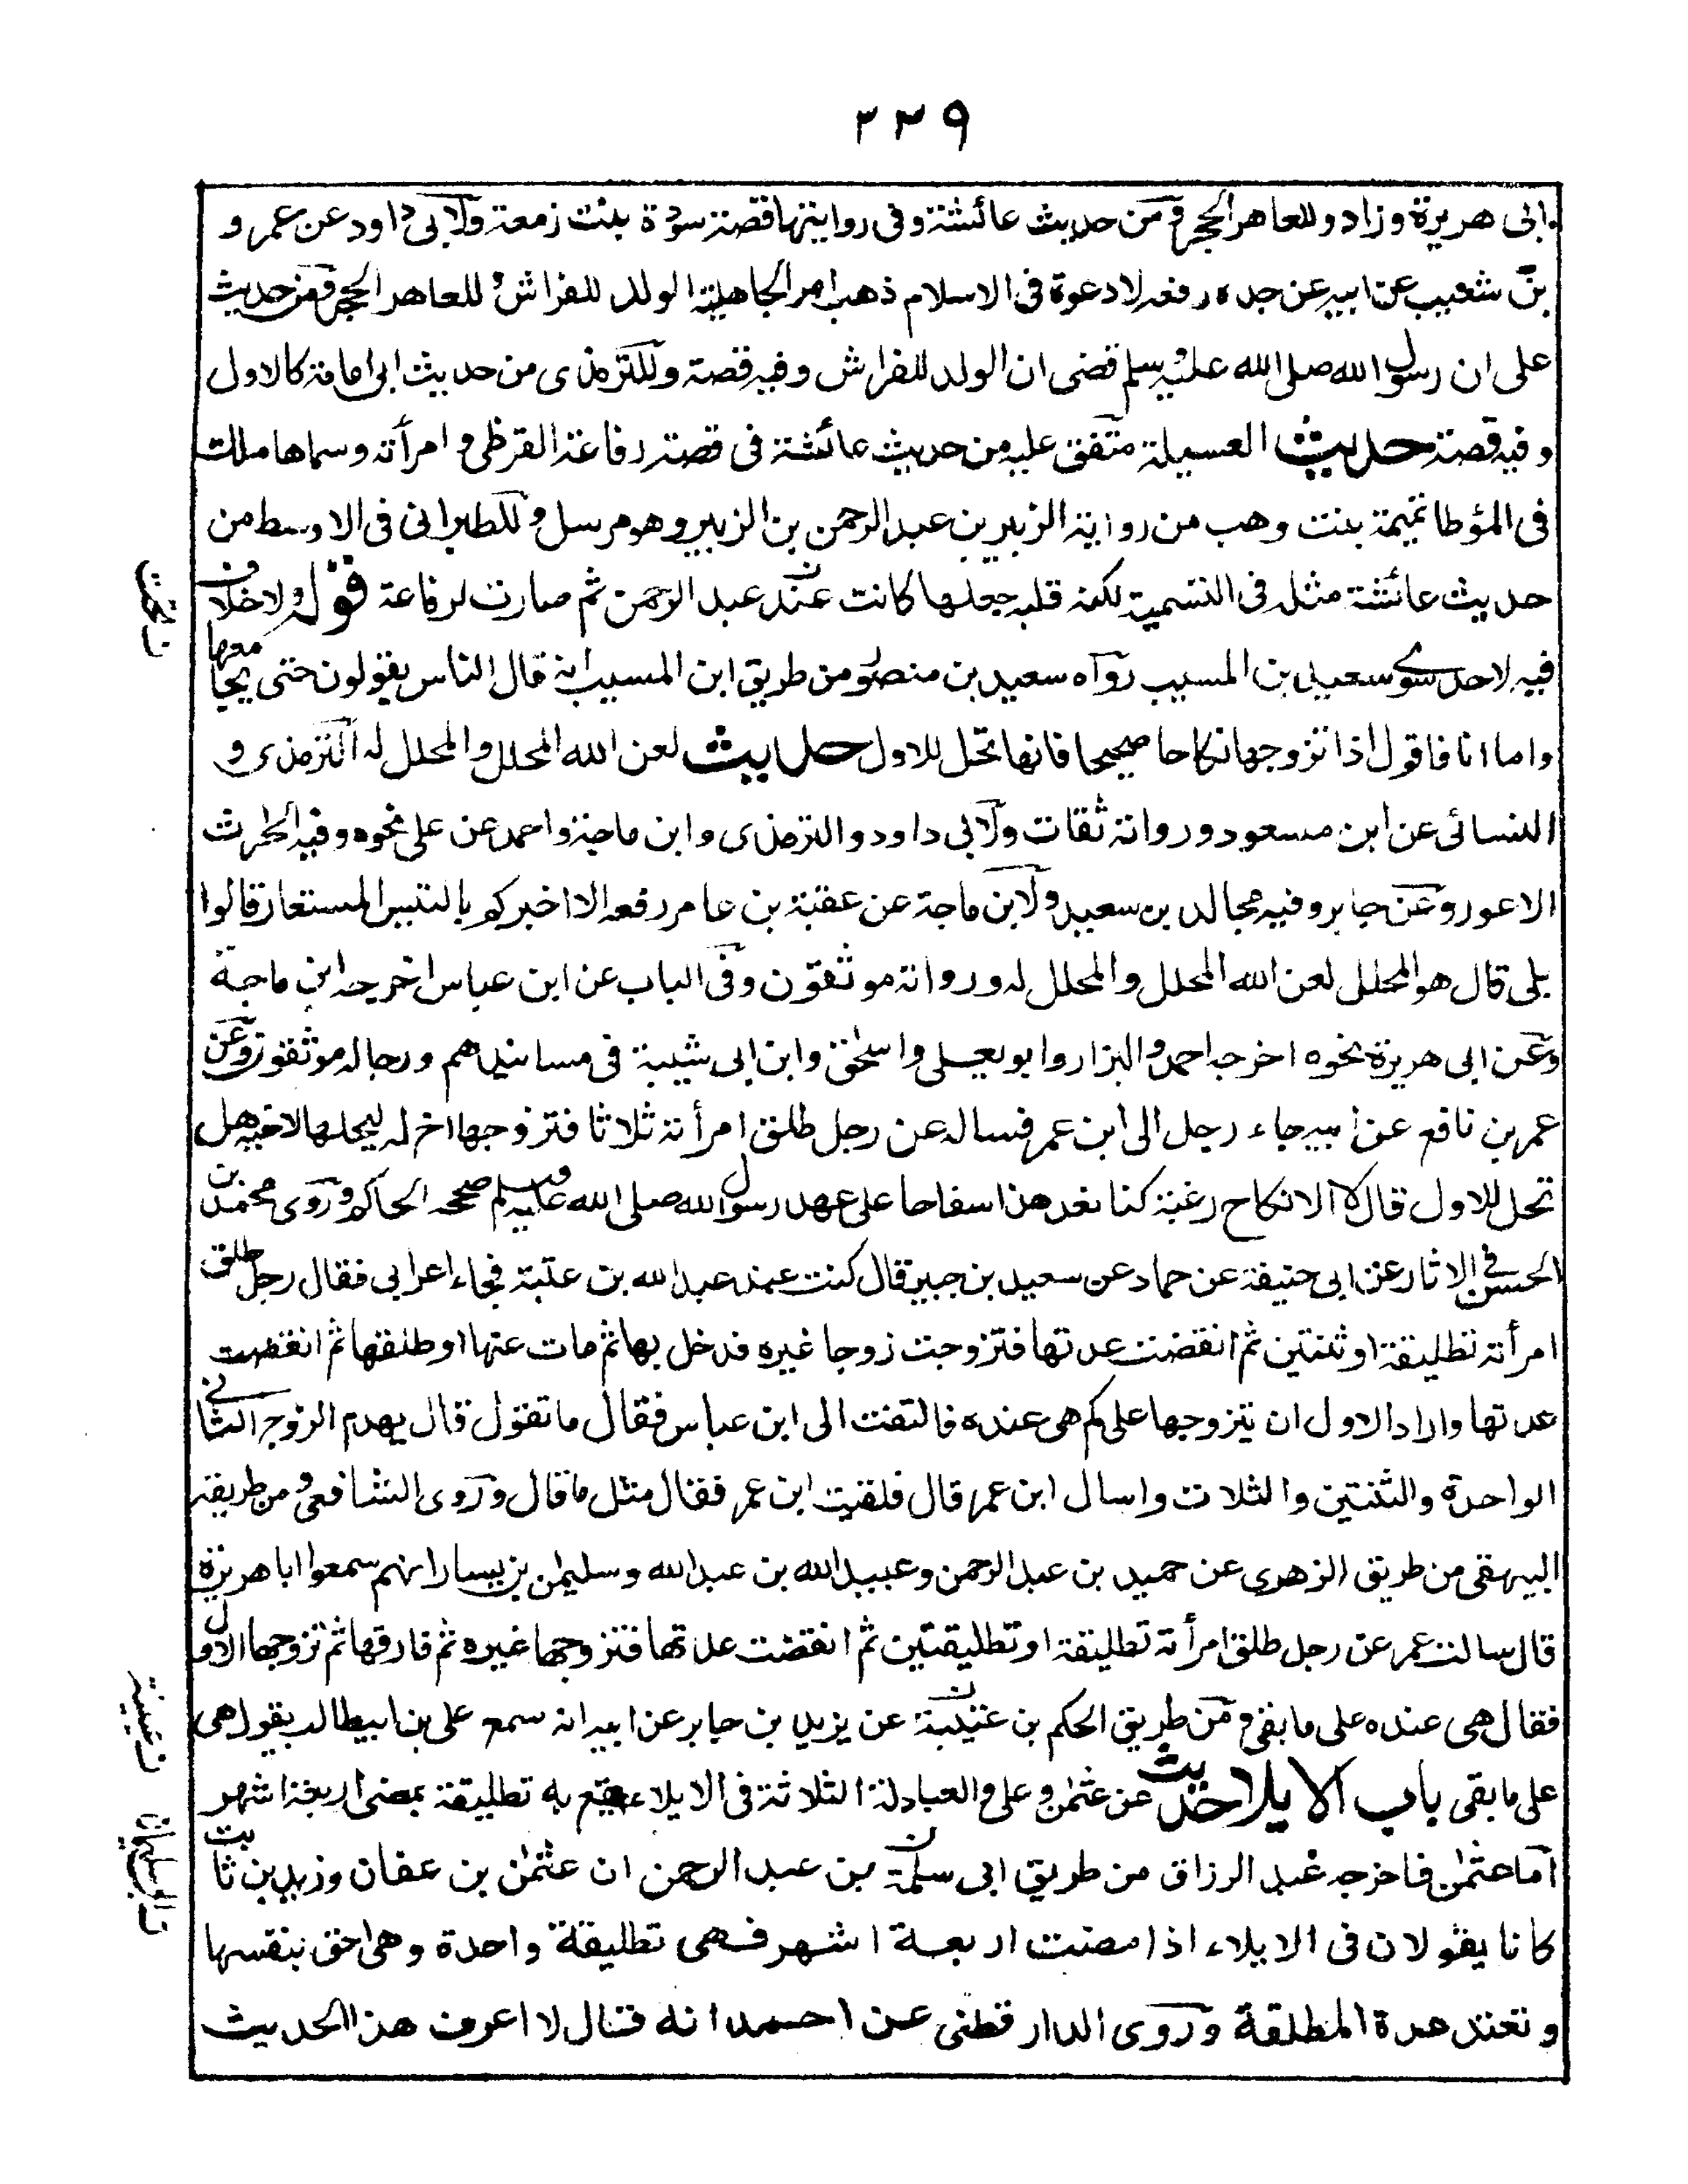 ٢٣٩
وابى هريرة وزاد وللعاهر الحجر ومن حديث عائشة وفى روايتها قصة سودة بنت زمعة ولابى داود عن عمرو
بن شعيب عن ابيه عن جده رفعه لا دعوة فى الاسلام ذهب امر الجاهلية الولد للفراش وللعاهر الحجر ومن حديث
على ان رسول الله صلى الله عليه وسلم قضى ان الولد للفراش وفيه قصة وللترمذى من حديث ابى امامة كالاول
وفيه قصة حديث العسيلة متفق عليه من حديث عائشة فى قصة رفاعة القرظى و امرأته وسماها ملك
فى المؤطا تميمة بنت وهب من رواية الزبير بن عبد الرحمن بن الزبير وهو مرسل وللطبرانى فى الاوسط من
حديث عائشة مثله فى التسمية لكنه قلبه جعلها كانت عند عبد الرحمن ثم صارت لرفاعة قوله ولا خلاف
فيه لاحد سوى سعيد بن المسيب رواه سعيد بن منصور من طريق ابن المسيب انه قال الناس يقولون حتى يجامعها
واما انا فاقول اذا تزوجها نكاحا صحيحا فانها تحل للاول حديث لعن الله المحلل والمحلل له الترمذى و
النسائى عن ابن مسعود ورواته ثقات ولابى داود والترمذى وابن ماجة واحمد عن على نحوه وفيه الحارث
الاعور وعن جابر وفيه مجالد بن سعيد ولابن ماجة عن عقبة بن عامر رفعه الا اخبركم بالتيس المستعار قالوا
بلى قال هو المحلل لعن الله المحلل والمحلل له ورواته موثقون وفى الباب عن ابن عباس اخرجه ابن ماجة
وعن ابى هريرة نحوه اخرجه احمد والبزار وابو يعلى واسحٰق وابن ابى شيبة فى مسانيدهم ورجاله موثقون وعن
عمر بن نافع عن ابيه جاء رجل الى ابن عمر فساله عن رجل طلق امرأته ثلاثا فتزوجها اخ له ليحلها لاخيه هل
تحل للاول قال لا الا نكاح رغبة كنا نعد هذا سفاحا على عهد رسول الله صلى الله عليه وسلم صححه الحاكم وروى محمد بن
الحسن فى الاثار عن ابى حنيفة عن حماد عن سعيد بن جبير قال كنت عند عبد الله بن عتبة فجاء اعرابى فقال رجل طلق
امرأته تطليقة او ثنتين ثم انقضت عدتها فتزوجت زوجا غيره فدخل بها ثم مات عنها او طلقها ثم انقضت
عدتها واراد الاول ان يتزوجها على كم هى عنده فالتفت الى ابن عباس فقال ما تقول قال يهدم الزوج الثانى
الواحدة والثنتين والثلاث واسال ابن عمر قال فلقيت ابن عمر فقال مثل ما قال وروى الشافعى ومن طريقه
البيهقى من طريق الزهرى عن حميد بن عبد الرحمن وعبيد الله بن عبد الله وسليمٰن بن يسار انهم سمعوا ابا هريرة
قال سالت عمر عن رجل طلق امرأته تطليقة او تطليقتين ثم انقضت عدتها فتزوجها غيره ثم فارقها ثم تزوجها الاول
فقال هى عنده على ما بقى ومن طريق الحكم بن عتيبة عن يزيد بن جابر عن ابيه انه سمع على بن ابيطالب يقول هى
على ما بقى باب الايلا حديث عن عثمٰن وعلى والعبادلة الثلاثة فى الايلاء يقع به تطليقة بمضى اربعة اشهر
اما عثمٰن فاخرجه عبد الرزاق من طريق ابى سلمة بن عبد الرحمن ان عثمٰن بن عفان وزيد بن ثابت
كانا يقولان فى الايلاء اذا مضت اربعة اشهر فهى تطليقة واحدة وهى احق بنفسها
وتعتد عدة المطلقة وروى الدارقطنى عن احمد انه قال لا اعرف هذا الحديث